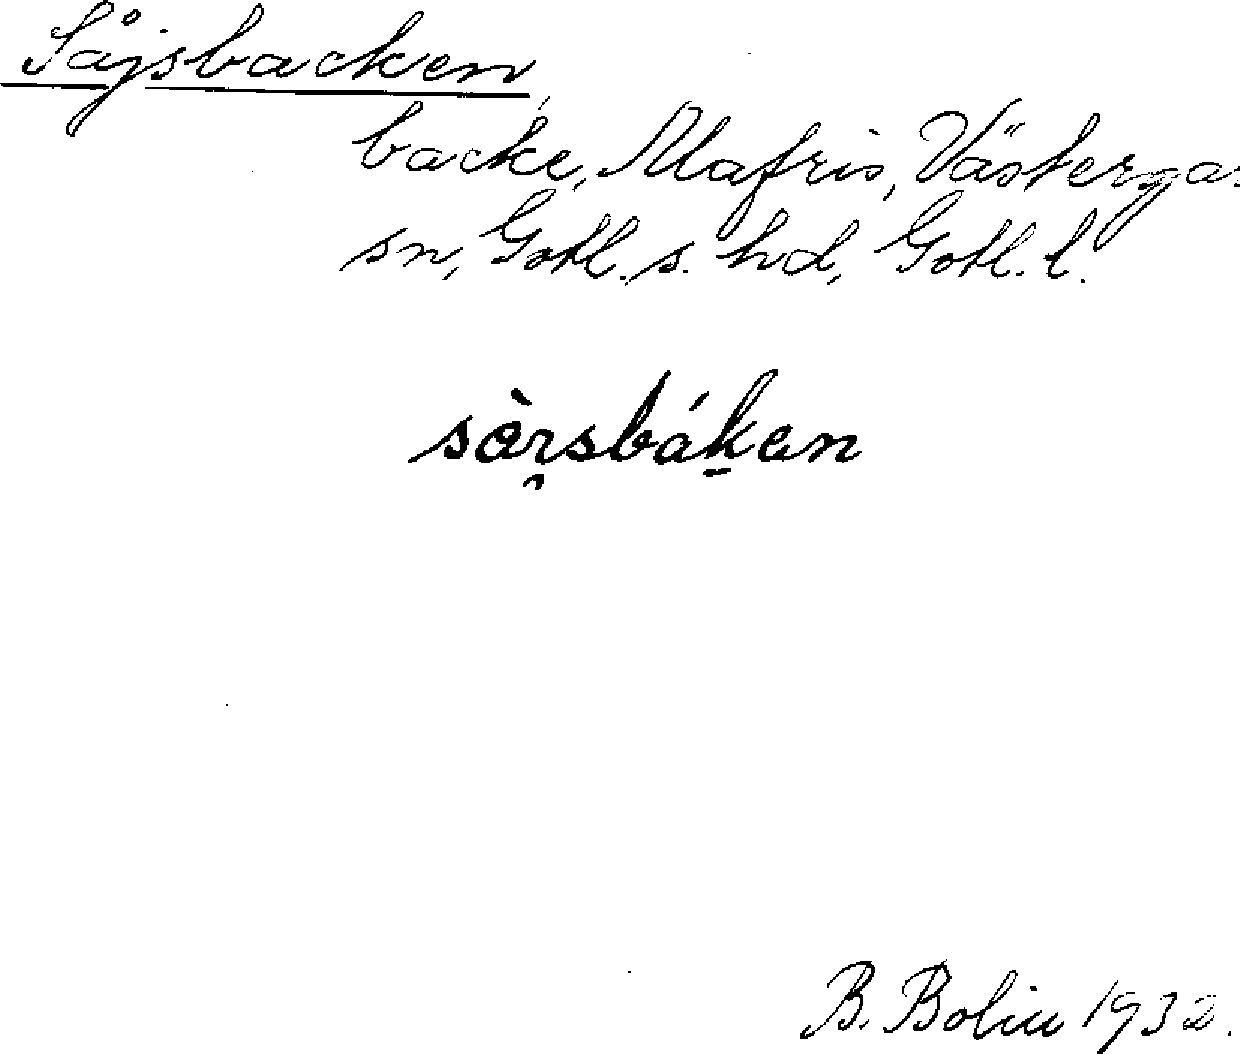 Såjsbacken,
backe, Mafris, Västergar
sn, Gotl. s. hd, Gotl. l.
B. Bolin 1932.